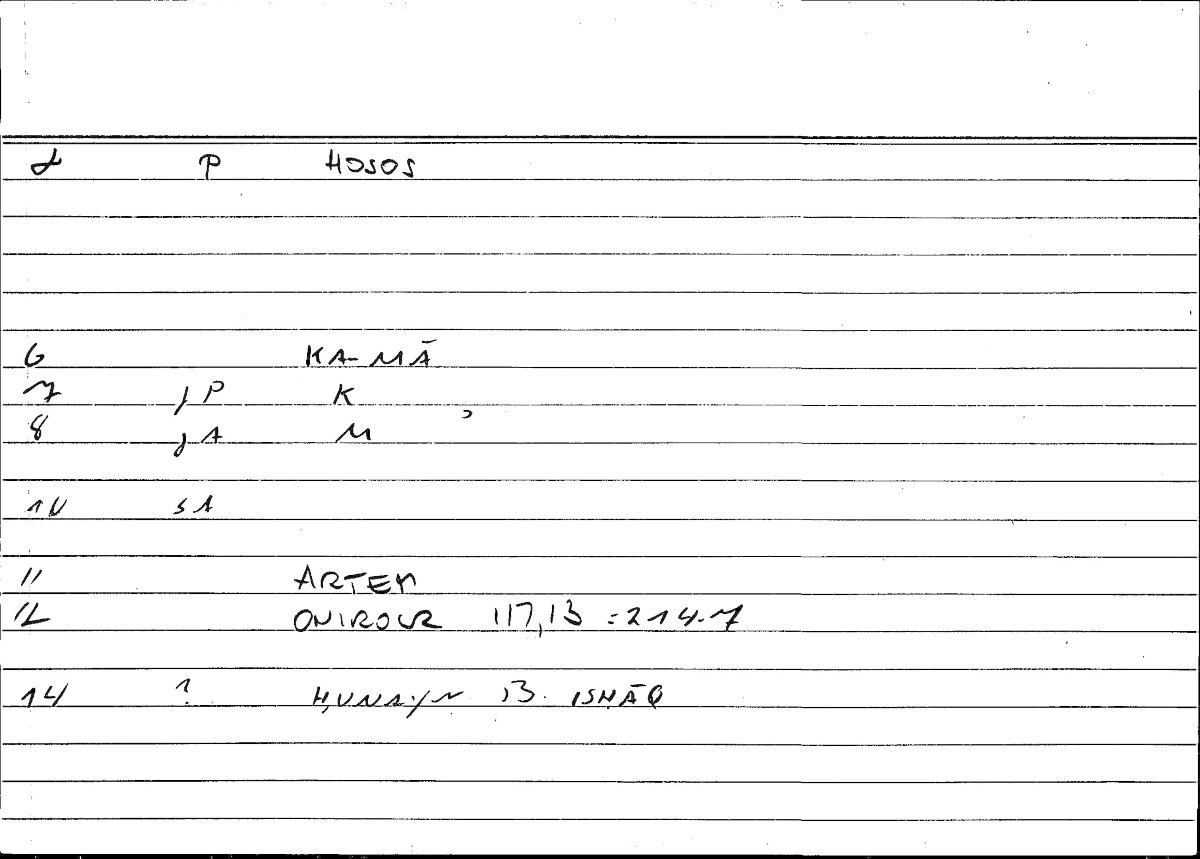 P HOSOS
6 KA-MĀ
7 ȷP K
8 ȷA M
10 sA
11 ARTEM
12 ONIROCR 117,13 = 214.7
14 ? ḤUNAYN B. ISḤĀQ